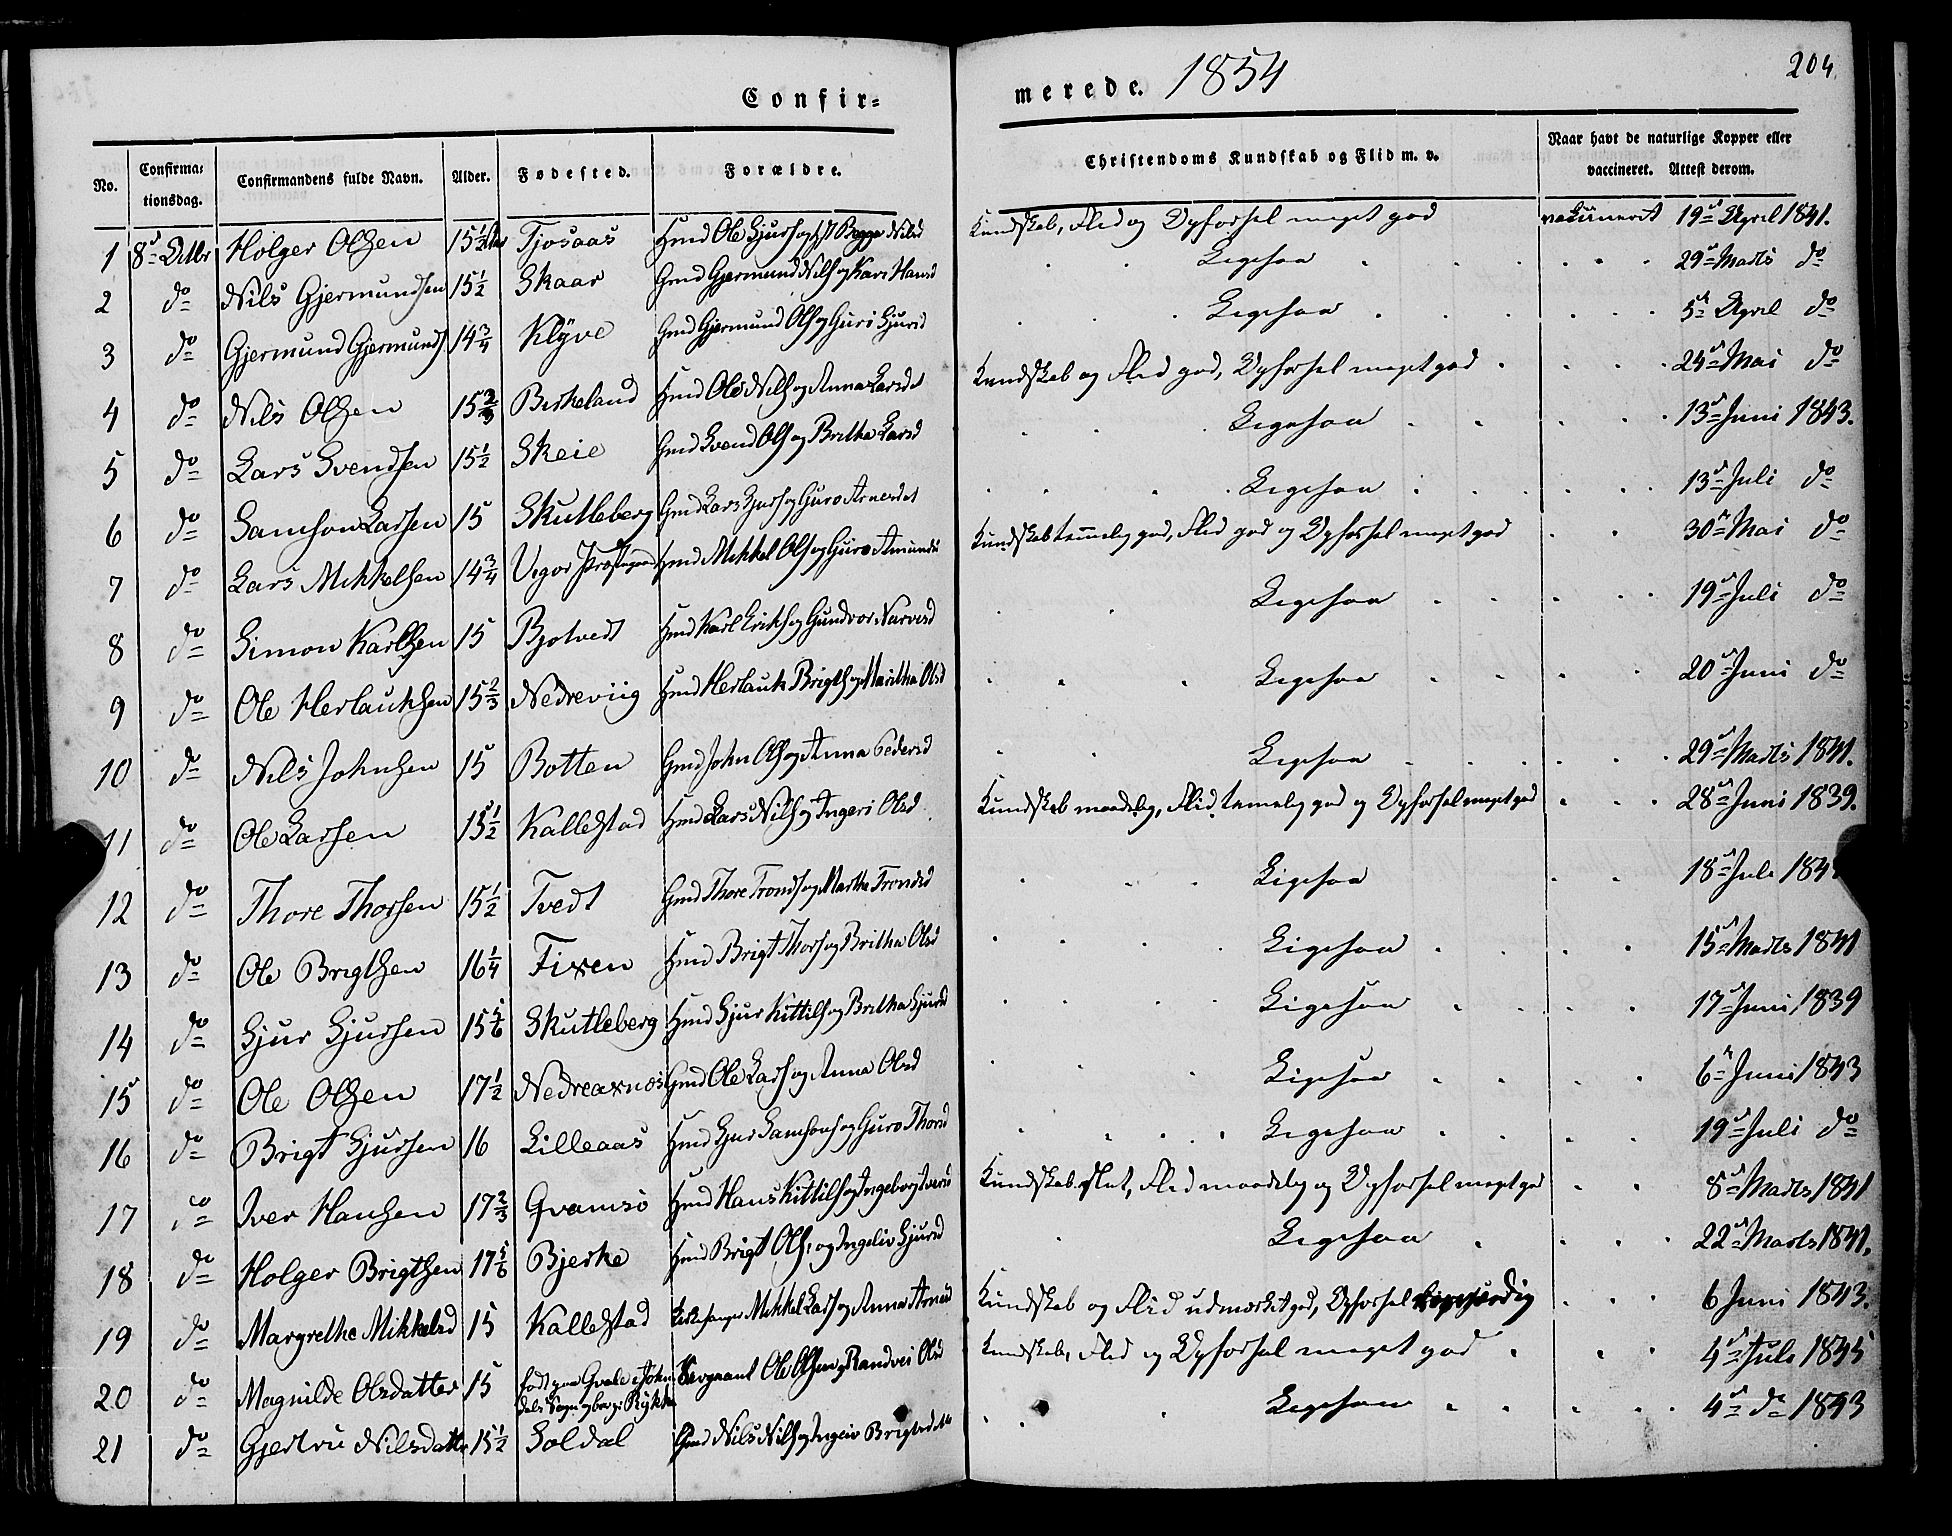 204.
Confir=
merede. 1854
No.
Confirma=
tionsdag.
Confirmandens fulde Navn.
Alder.
Fødested.
Forældre.
Christendoms Kundskab og Flid m. v.
Naar havt de naturlige Kopper eller
vaccineret. Attest derom.
1 8d Octbr Holger Olsen 15½ Tjosaas Hmd Ole Sjurs og Nilsd Kundskab, Flid og Opførsel meget god vakcineret 19d April 1841.
2 do Nils Gjermundsen 15½ Skaar Gmd Gjermund Nils og Kari Hansd Ligesaa 29d Marts do
3 do Gjermund Gjermunds 14¾ Klyve Gmd Gjermund Ols og Guri Sjursd Ligesaa 5d April do
4 do Nils Olsen 15⅔ Birkeland Hmd Ole Nils og Anna Larsdt Kundskab og Flid god, Opførsel meget god 24d Mai do
5 do Lars Svendsen 15½ Skeie Gmd Svend Ols og Britha Larsd Ligesaa 13d Juni 1843.
6 do Samson Larsen 15 Skutleberg Gmd Lars Sjurs og Guro Arnesdt Ligesaa 13d Juli do
7 do Lars Mikkelsen 14¾ Vigør Hmd Mikkel Ols og Guro Amunds Kundskab temmelig god, Flid god og Opførsel meget god 30d Mai do
8 do Simon Karlsen 15 Bjotvedt Hmd Karl Eriks og Gundvor Narvesd Ligesaa 19d Juli do
9 do Ole Herlauksen 15⅔ Nedreviig Hmd Herlauk Brigths og Maritha Olsd Ligesaa 20d Juni do
10 do Nils Johnsen 15 Botten Gmd John Ols og Anna Pedersd Ligesaa 29d Marts 1841.
11 do Ole Larsen 15½ Kallestad Hmd Lars Nils og Ingeri Olsd Kundskab maadelig, Flid temelig god og Opførsel meget god 28d Juni 1839.
12 do Thore Thorsen 15½ Tvedt Gmd Thore Tronds og Martha Trondsd Ligesaa 18d Juli
13 do Ole Brigthsen 16¼ Fixen Hmd Brigt Thors og Britha Olsd Ligesaa 15d Marts 1841
14 do Sjur Sjursen 15⅚ Skutleberg Hmd Sjur Kittils og Britha Sjursd Ligesaa 17d Juni 1839
15 do Ole Olsen 17½ Nedreaxnes Gmd Ole Lars og Anna Olsd Ligesaa 6d Juni 1843
16 do Brigt Sjursen 16 Lilleaas Hmd Sjur Samsons og Guro Thorsd Ligesaa 19d Juli do
17 do Iver Hansen 17⅔ Qvamsø Hmd Hans Kittils og Ingeborg Iversd Kundskab slet, Flid maadelig og Opførsel meget god 8d Marts 1841
18 do Holger Brigthsen 17⅚ Bjerke Hmd Brigt Ols og Ingeliv Sjursd Ligesaa 22d Marts 1841.
19 do Margrethe Mikkelsd 15 Kallestad Kirkesanger Mikkel Lars og Anna Arnesd Kundskab og Flid udmærket god, Opførsel 6 Juni 1843.
20 do Magnilde Olsdatter 15 født paa Qvale i Sogn og Sergeant Ole Olsen og Randvei Olsd Kundskab, Flid og Opførsel meget god 4d Juli 1845
21 do Gjertru Nilsdatter 15½ Soldal Gmd Nils Nils og Brigtsdt Ligesaa 4d do 1843